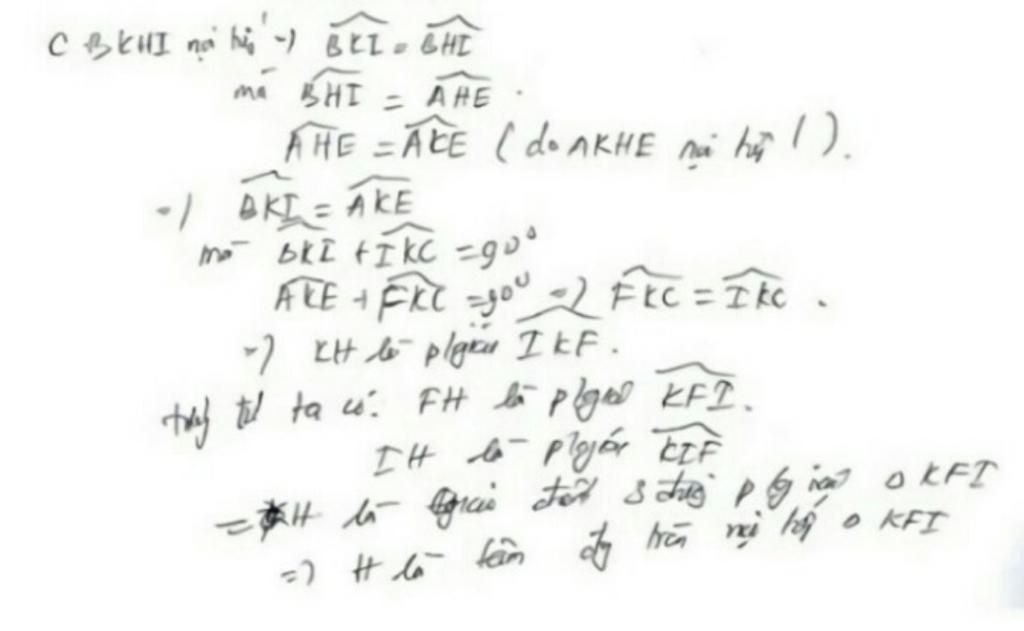 C BKHI nội tiếp => BKI = BHI
mà BHI = AHE.
AHE = AKE (do AKHE nội tiếp).
=> BKI = AKE
mà BKI + IKC = 90°
AKE + FKC = 90° => FKC = IKC.
=> KH là p/giác IKF.
ta có: FH là p/giác KFI.
IH là p/giác KIF
=> H là giao 3 đường p/giác Δ KFI
=> H là tâm đg tròn nội tiếp Δ KFI